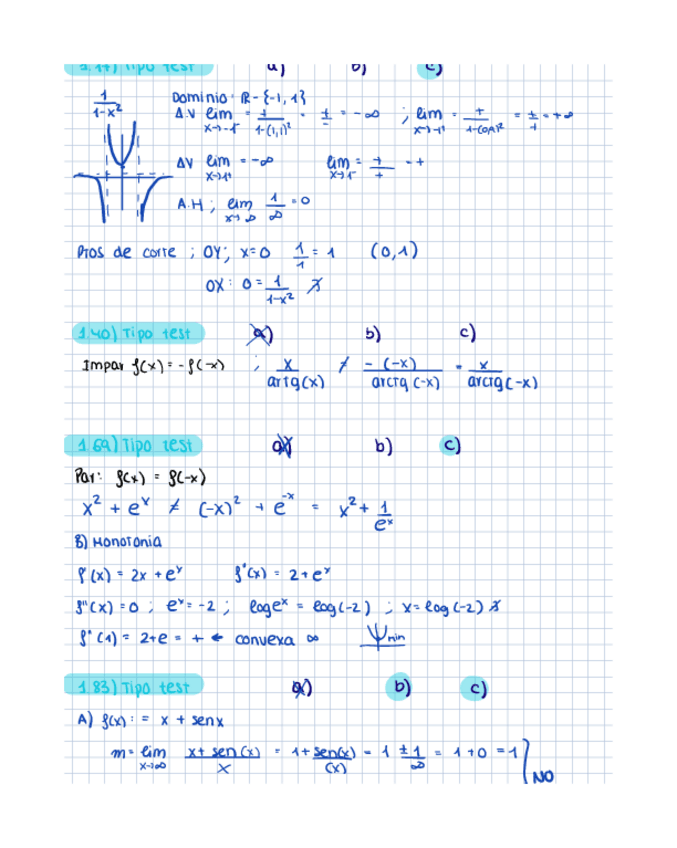 1.17) Tipo test a) b) c)
1/(1-x²) Dominio: ℝ - {-1, 1}
A.V lim x→-1⁻ = 1/(1-(1,1)²) = 1/- = -∞ ; lim x→-1⁺ = +/(1-(0,9)²) = ±/+ = +∞
AV lim x→1⁺ = -∞ lim x→1⁻ = +/+ = +
A.H ; lim x→∞ 1/∞ = 0
Ptos de corte ; OY; x=0 1/1 = 1 (0,1)
OX: 0 = 1/(1-x²) ∄
1.40) Tipo test a) b) c)
Impar f(x) = -f(-x) ; x/artg(x) ≠ -(-x)/arctg(-x) = x/arctg(-x)
1.69) Tipo test a) b) c)
Par: f(x) = f(-x)
x² + eˣ ≠ (-x)² + e⁻ˣ = x² + 1/eˣ
B) Monotonia
f'(x) = 2x + eˣ f''(x) = 2+eˣ
f''(x) = 0 ; eˣ = -2 ; log eˣ = log(-2) ; x = log(-2) ∄
f''(1) = 2+e = + ← convexa ∞ min
1.83) Tipo test a) b) c)
A) f(x): = x + senx
m = lim x→∞ (x + sen(x))/x = 1 + sen(x)/(x) = 1 ± 1/∞ = 1 + 0 = 1
NO